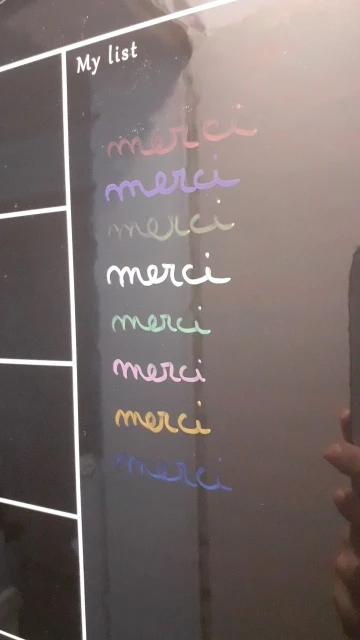 My list
merci
merci
merci
merci
merci
merci
merci
merci